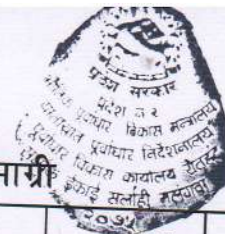 प्रदेश सरकार
प्रदेश नं २
भौतिक पूर्वाधार विकास मन्त्रालय
यातायात पूर्वाधार निर्देशनालय
पूर्वाधार विकास कार्यालय रौतहट
ईकाई सर्लाही मलंगवा
२०७५
माग्री